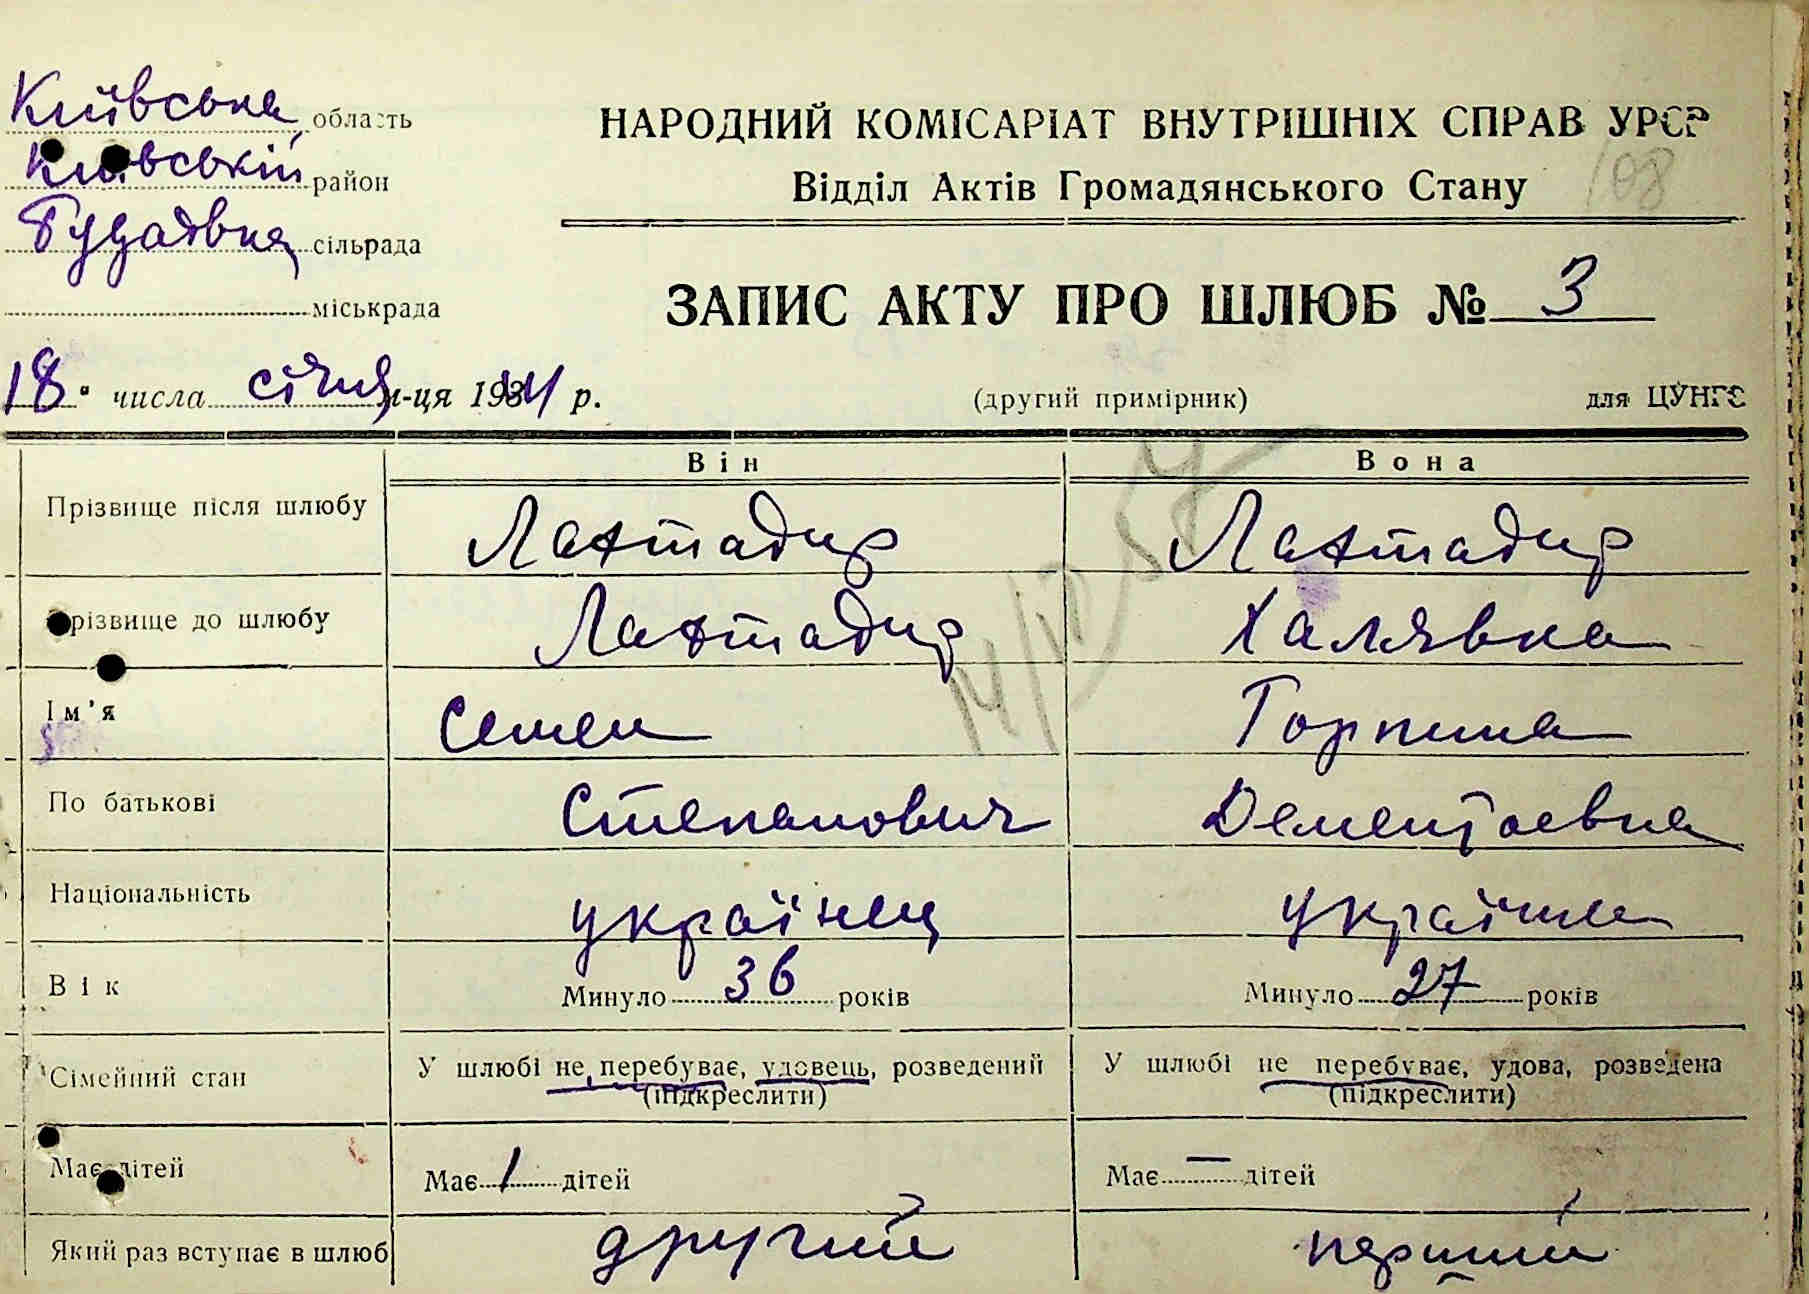 Київська область
Київський район
Будаївка сільрада
міськрада
НАРОДНИЙ КОМІСАРІАТ ВНУТРІШНІХ СПРАВ УРСР
Відділ Актів Громадянського Стану
108
ЗАПИС АКТУ ПРО ШЛЮБ № 3
18 " числа січня м-ця 1934 р.
(другий примірник)
для ЦУНГО
Він
Вона
Прізвище після шлюбу
Лахтадир
Лахтадир
Прізвище до шлюбу
Лахтадир
Халявка
Ім'я
Семен
Горпина
По батькові
Степанович
Дементаевна
Національність
українец
українка
Вік
Минуло 36 років
Минуло 27 років
Сімейний стан
У шлюбі не перебуває, удовець, розведений
(підкреслити)
У шлюбі не перебуває, удова, розведена
(підкреслити)
Має дітей
Має 1 дітей
Має — дітей
Який раз вступає в шлюб
другий
перший